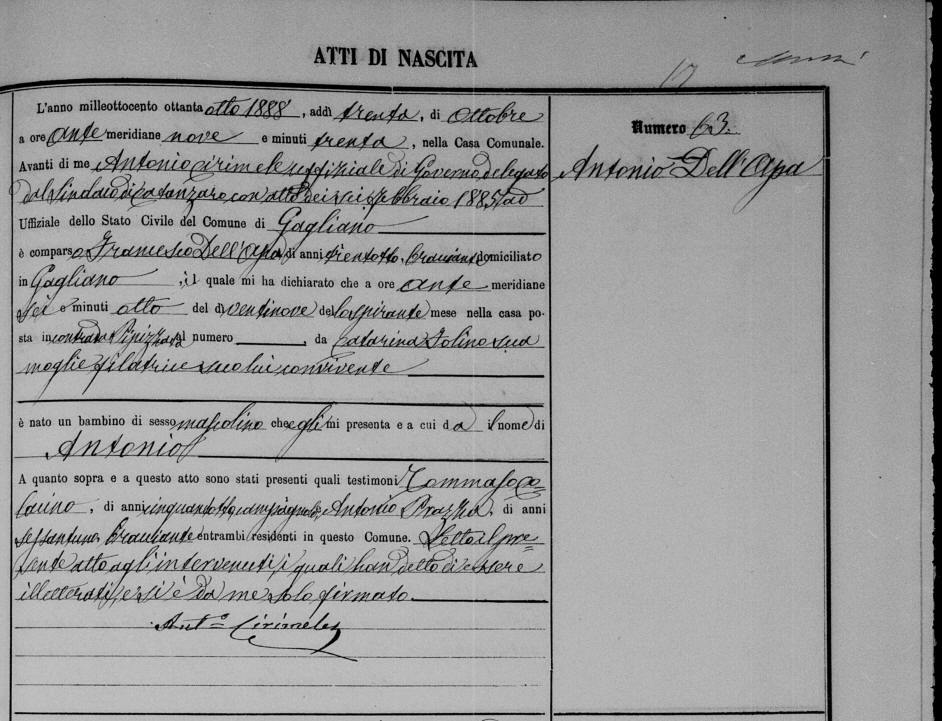 ATTI DI NASCITA
17
Numero 63.
Antonio Dell'Apa
L'anno milleottocento ottanta otto 1888, addì trenta, di Ottobre
a ore ante meridiane nove e minuti trenta, nella Casa Comunale.
Avanti di me Antonio Cirimele uffiziale di Governo delegato
dal Sindaco di Catanzaro con atto dei sei febbraio 1885 ad
Uffiziale dello Stato Civile del Comune di Gagliano
è comparso Francesco Dell'Apa di anni trentotto, bracciante domiciliato
in Gagliano, il quale mi ha dichiarato che a ore ante meridiane
sei e minuti otto del dì ventinove del spirante mese nella casa po-
sta in contrada al numero , da Catarina Iolino sua
moglie filatrice seco lui convivente
è nato un bambino di sesso mascolino che egli mi presenta e a cui dà il nome di
Antonio
A quanto sopra e a questo atto sono stati presenti quali testimoni Tommaso
, di anni cinquantotto, campagnolo, Antonio , di anni
sessantuno, bracciante entrambi residenti in questo Comune. Letto il pre=
sente atto agli intervenuti, i quali han detto di essere
illetterati, e si è da me solo firmato.
Ant.º Cirimele